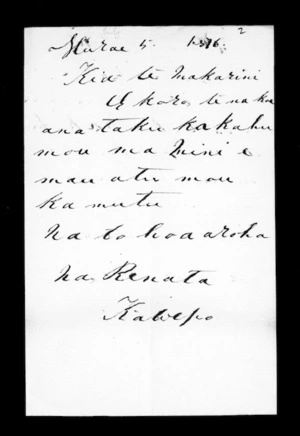 Hurae 5. 1876. 2
Kia te Makarini
E koro, te na koe
ana taku kakahu
mou ma Mini e
mau atu mou
ka mutu
Na to hoa aroha
Na Renata
Kawepo